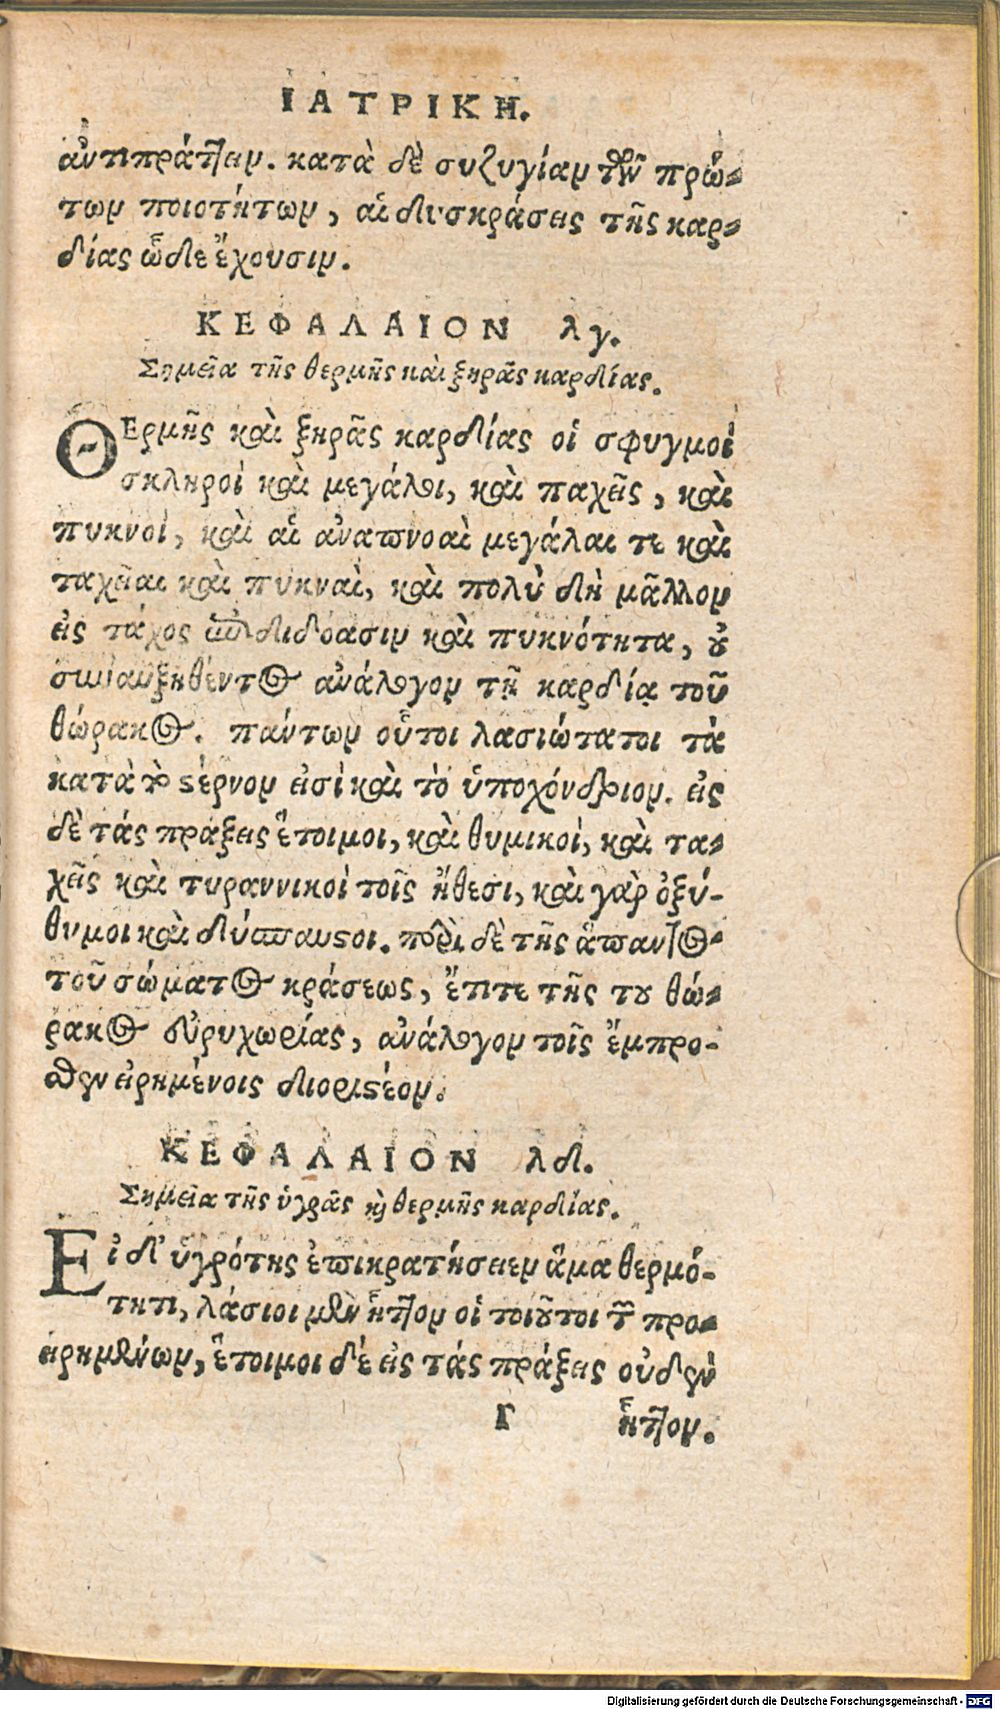 ΙΑΤΡΙΚΗ.
ἀντιπράττειν. κατὰ δὲ συζυγίαν τῶν πρώ-
των ποιοτήτων, αἱ δυσκράσεις τῆς καρ-
δίας ὧδε ἔχουσιν.
ΚΕΦΑΛΑΙΟΝ λγ.
Σημεῖα τῆς θερμῆς καὶ ξηρᾶς καρδίας.
ΘΕρμῆς καὶ ξηρᾶς καρδίας οἱ σφυγμοὶ
σκληροὶ καὶ μεγάλοι, καὶ παχεῖς, καὶ
πυκνοὶ, καὶ αἱ ἀναπνοαὶ μεγάλαι τε καὶ
ταχεῖαι καὶ πυκναὶ, καὶ πολὺ δὴ μᾶλλον
εἰς τάχος ἐπιδιδόασιν καὶ πυκνότητα, οὐ
συναυξηθέντος ἀνάλογον τῇ καρδίᾳ τοῦ
θώρακος. πάντων οὗτοι λασιώτατοι τὰ
κατὰ τὸ στέρνον εἰσὶ καὶ τὸ ὑποχόνδριον. εἰς
δὲ τάς πράξεις ἕτοιμοι, καὶ θυμικοὶ, καὶ τα-
χεῖς καὶ τυραννικοὶ τοῖς ἤθεσι, καὶ γὰρ ὀξύ-
θυμοι καὶ δύσπαυστοι. περὶ δὲ τῆς ἅπαντος
τοῦ σώματος κράσεως, ἔτιτε τῆς του θώ-
ρακος εὐρυχωρίας, ἀνάλογον τοῖς ἔμπρο-
σθεν εἰρημένοις διοριστέον.
ΚΕΦΑΛΑΙΟΝ λδ.
Σημεῖα τῆς ὑγρᾶς καὶ θερμῆς καρδίας.
Εἰ δ' ὑγρότης ἐπικρατήσειεν ἅμα θερμό-
τητι, λάσιοι μὲν ἧττον οἱ τοιοῦτοι τῶν προ-
ειρημένων, ἕτοιμοι δέ εἰς τάς πράξεις οὐδὲν
Γ ἧττον.
Digitalisierung gefördert durch die Deutsche Forschungsgemeinschaft - DFG